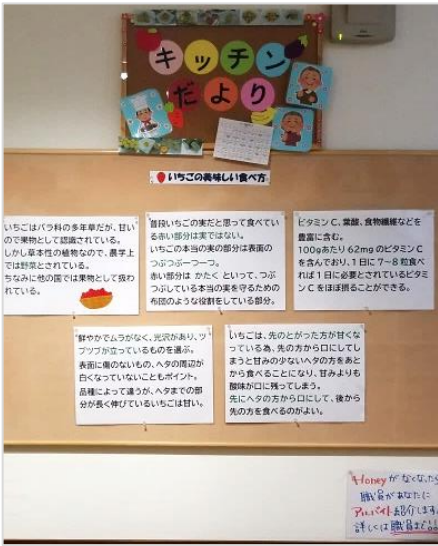 キッチン
だより
いちごの美味しい食べ方
いちごはバラ科の多年草だが、甘い
ので果物として認識されている。
しかし草本性の植物なので、農学上
では野菜とされている。
ちなみに他の国では果物として扱わ
れている。
普段いちごの実だと思って食べてい
る赤い部分は実ではない。
いちごの本当の実の部分は表面の
つぶつぶ一つ一つ。
赤い部分は かたく といって、つぶ
つぶしている本当の実を守るための
布団のような役割をしている部分。
ビタミンC、葉酸、食物繊維などを
豊富に含む。
100gあたり62mgのビタミンC
を含んでおり、1日に7~8粒食べ
れば1日に必要とされているビタミ
ンCをほぼ摂ることができる。
鮮やかでムラがなく、光沢があり、ツ
ブツブが立っているものを選ぶ。
表面に傷のないもの、ヘタの周辺が
白くなっていないこともポイント。
品種によって違うが、ヘタまでの部
分が長く伸びているいちごは甘い。
いちごは、先のとがった方が甘くな
っている為、先の方から口にしてし
まうと甘みの少ないヘタの方をあと
から食べることになり、甘みよりも
酸味が口に残ってしまう。
先にヘタの方から口にして、後から
先の方を食べるのがよい。
Honeyがなくなったら
職員があなたに
アルバイト紹介します。
詳しくは職員まで!!